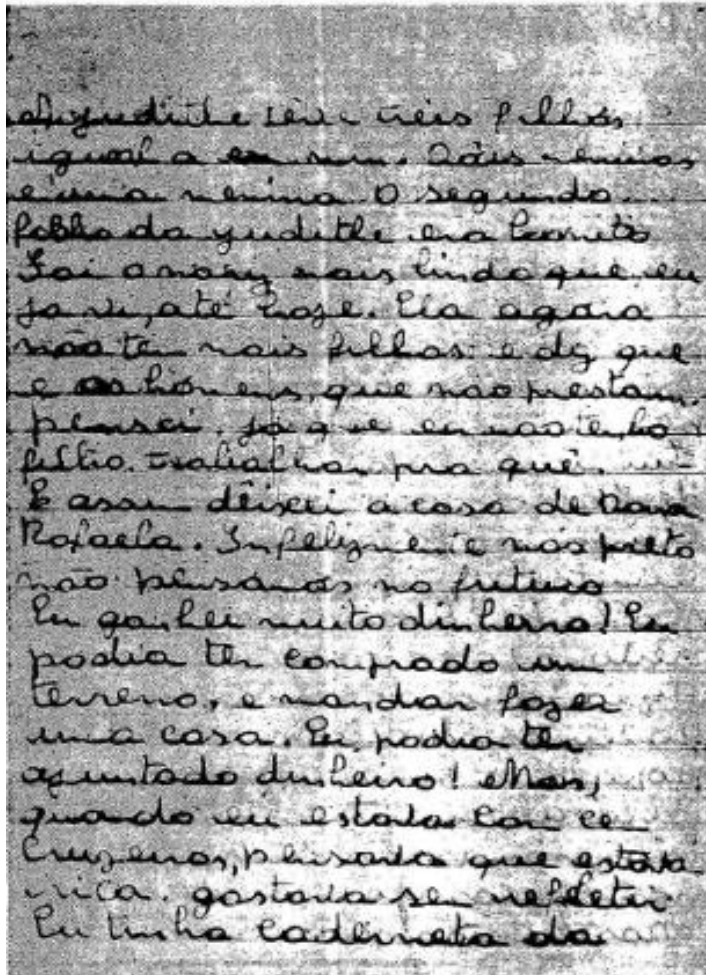 A yudithe teve treis filhos
igual a eu mim. Dois meninos
e uma menina O segundo
filho da yudithe era bonito
Foi o nory mais lindo que eu
ja vi, até hoje. Ela agora
não tem mais filhos e diz que
e os homens, que não prestam.
pensei. ja que eu não tenho
filho. trabalhar pra quê.
E assim dêixei a casa de Dona
Rafaela. Infelizmente nós preto
não pensamos no futuro
Eu ganhei muito dinheiro! Eu
podia ter comprado um
terreno, e mandar fazer
uma casa. Eu podia ter
ajuntado dinheiro! Mas,
quando eu estava com cem
cruzeiros, pensava que estava
rica. gastava sem refletir
Eu tinha caderneta da